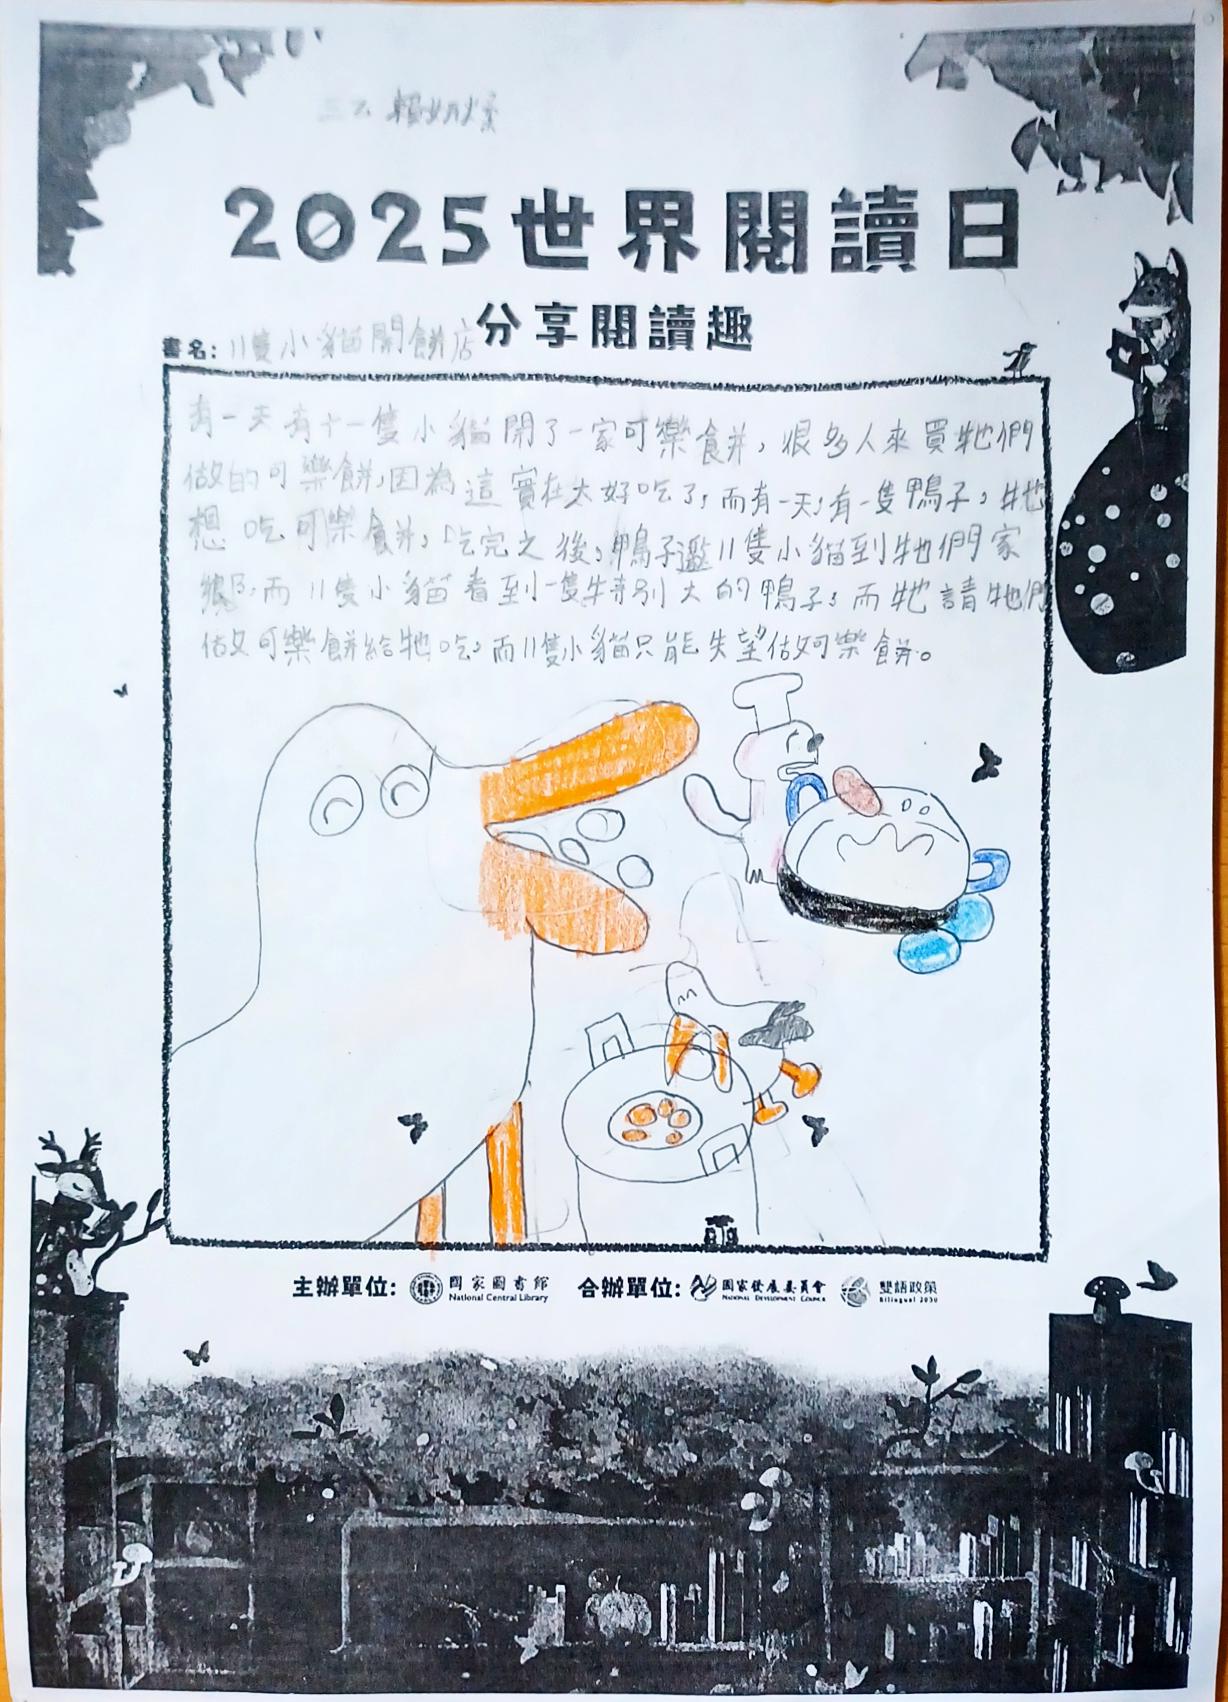 三乙 賴
2025世界閱讀日
分享閱讀趣
書名: 11隻小貓開餅店
有一天有十一隻小貓開了一家可樂餅,很多人來買牠們
做的可樂餅,因為這實在太好吃了,而有一天,有一隻鴨子,牠
想吃可樂餅,吃完之後,鴨子邀11隻小貓到牠們家
鄉,而11隻小貓看到一隻特別大的鴨子,而牠請牠們
做可樂餅給牠吃,而11隻小貓只能失望做可樂餅。
主辦單位: 國家圖書館 National Central Library 合辦單位: 國家發展委員會 National Development Council 雙語政策 Bilingual 2030